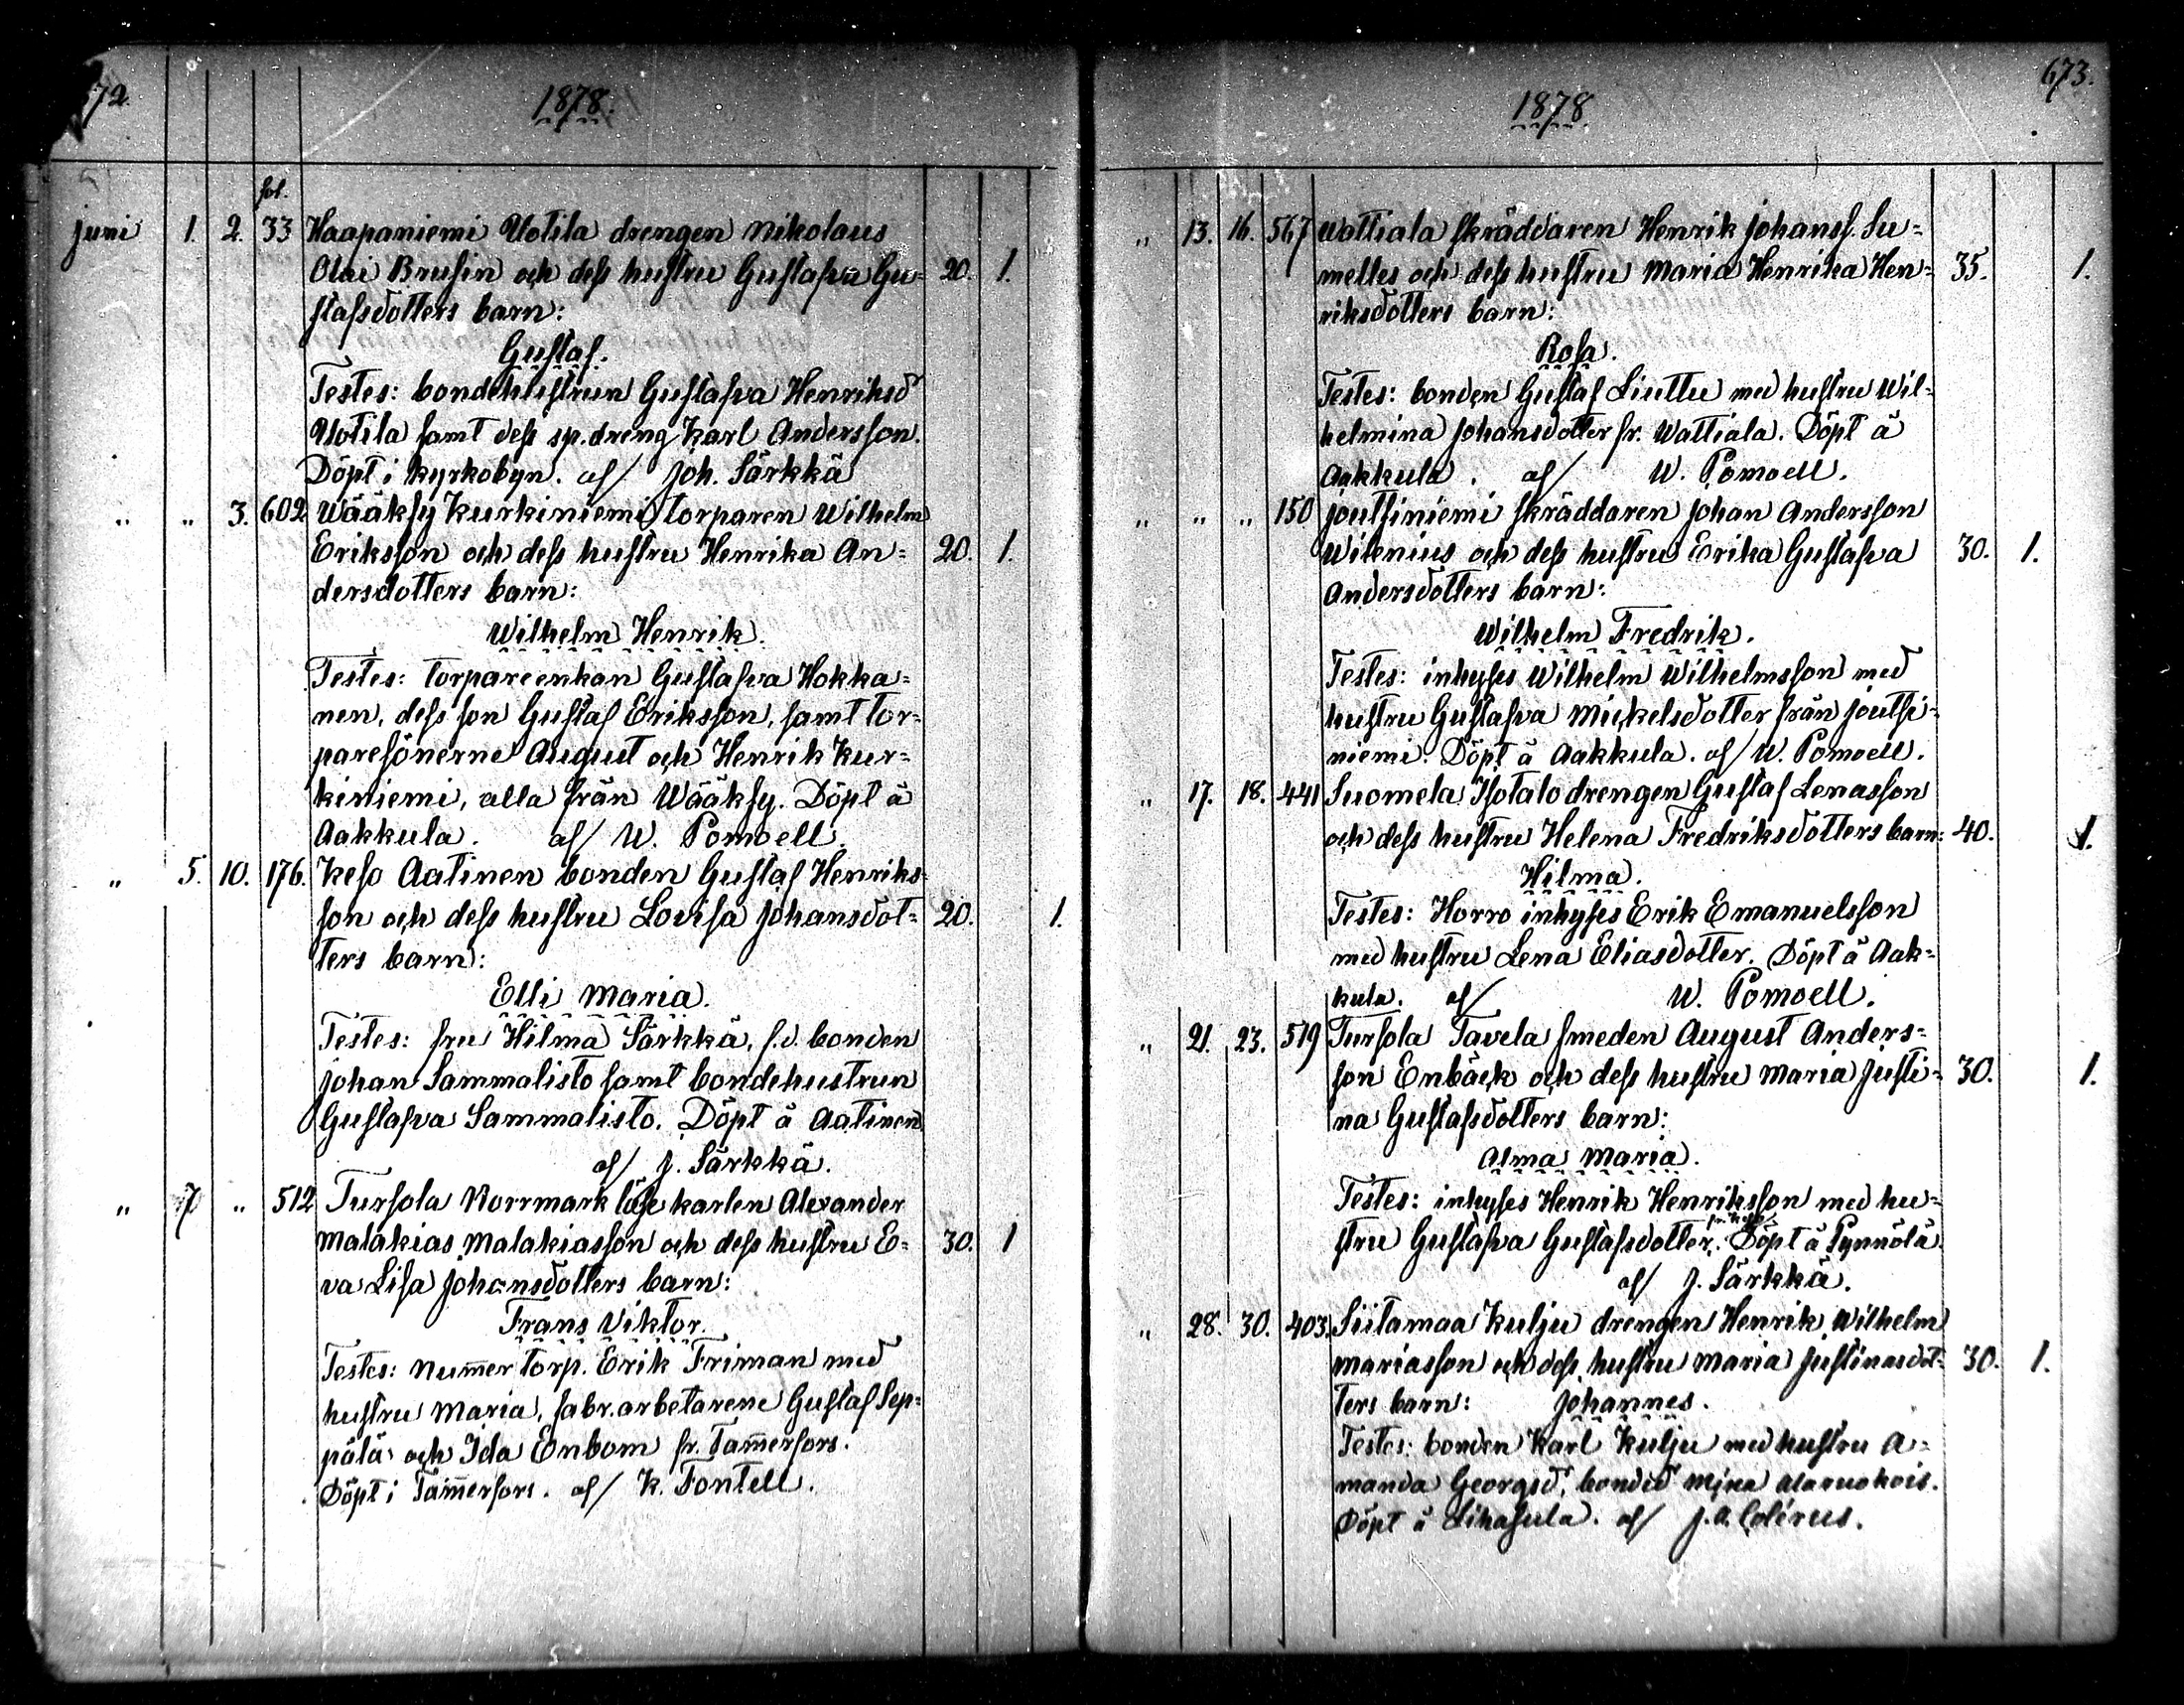 72.
1878.
fol.
juni 1. 2. 33 Haapaniemi Uotila drengen Nikolaus
Olai Brusin och dess hustru Gustafva Gu= 20. 1.
stafsdotters barn:
Gustaf.
Testes: bondehustrun Gustafva Henriksd
Uotila samt dess sp. dreng Karl Andersson.
Döpt i kyrkobyn. af/ Joh. Särkkä
" " 3. 602 Wääksy Kurkiniemi torparen Wilhelm
Eriksson och dess hustru Henrika An= 20. 1.
dersdotters barn:
Wilhelm Henrik.
Testes: torpareenkan Gustafva Hokka=
nen, dess son Gustaf Eriksson, samt tor=
paresönerne August och Henrik Kur=
kiniemi, alla från Wääksy. Döpt å
Aakkula. af/ W. Pomoell.
" 5. 10. 176. Keso Aatinen bonden Gustaf Henriks=
son och dess hustru Lovisa Johansdot= 20. 1.
ters barn:
Elli Maria.
Testes: fru Hilma Särkkä, f.d. bonden
Johan Sammalisto samt bondehustrun
Gustafva Sammalisto. Döpt å Aatinen
af/ J. Särkkä.
" 7 " 512 Tursola Norrmark lösekarlen Alexander
Malakias Malakiasson och dess hustru E= 30. 1
va Lisa Johansdotters barn:
Frans Viktor.
Testes: Num̄er torp. Erik Friman med
hustru Maria, fabr.arbetarene Gustaf Sep=
pälä och Ida Enbom fr. Tam̄erfors.
Döpt i Tam̄erfors. af/ K. Fontell.
673.
1878.
" 13. 16. 567 Wattiala skräddaren Henrik Johanss. Su=
melles och dess hustru Maria Henrika Hen= 35. 1.
riksdotters barn:
Rosa.
Testes: bonden Gustaf Liuttu med hustru Wil=
helmina Johansdotter fr. Wattiala. Döpt å
Aakkula. af/ W. Pomoell.
" " " 150 Joutsiniemi skräddaren Johan Andersson
Wilenius och dess hustru Erika Gustafva 30. 1.
Andersdotters barn:
Wilhelm Fredrik.
Testes: inhyses Wilhelm Wilhelmsson med
hustru Gustafva Mickelsdotter från Joutsi=
niemi. Döpt å Aakkula. af/ W. Pomoell.
" 17. 18. 441 Suomela Isotalo drengen Gustaf Lenasson
och dess hustru Helena Fredriksdotters barn: 40. 1.
Hilma.
Testes: Horro inhyses Erik Emanuelsson
med hustru Lena Eliasdotter. Döpt å Aak=
kula. af/ W. Pomoell.
" 21. 23. 519 Tursola Tavela smeden August Anders=
son Enbäck och dess hustru Maria Justi= 30. 1.
na Gustafsdotters barn:
Alma Maria.
Testes: inhyses Henrik Henriksson med hu=
stru Gustafva Gustafsdotter. Döpt å Pynnölä.
af/ J. Särkkä.
" 28. 30. 403. Siitamaa Kulju drengen Henrik Wilhelm
Mariasson och dess hustru Maria Justinasdot= 30. 1.
ters barn: Johannes.
Testes: bonden Karl Kulju med hustru A=
manda Georgsd,
Döpt å Lihasula. af/ J. A. Colérus.